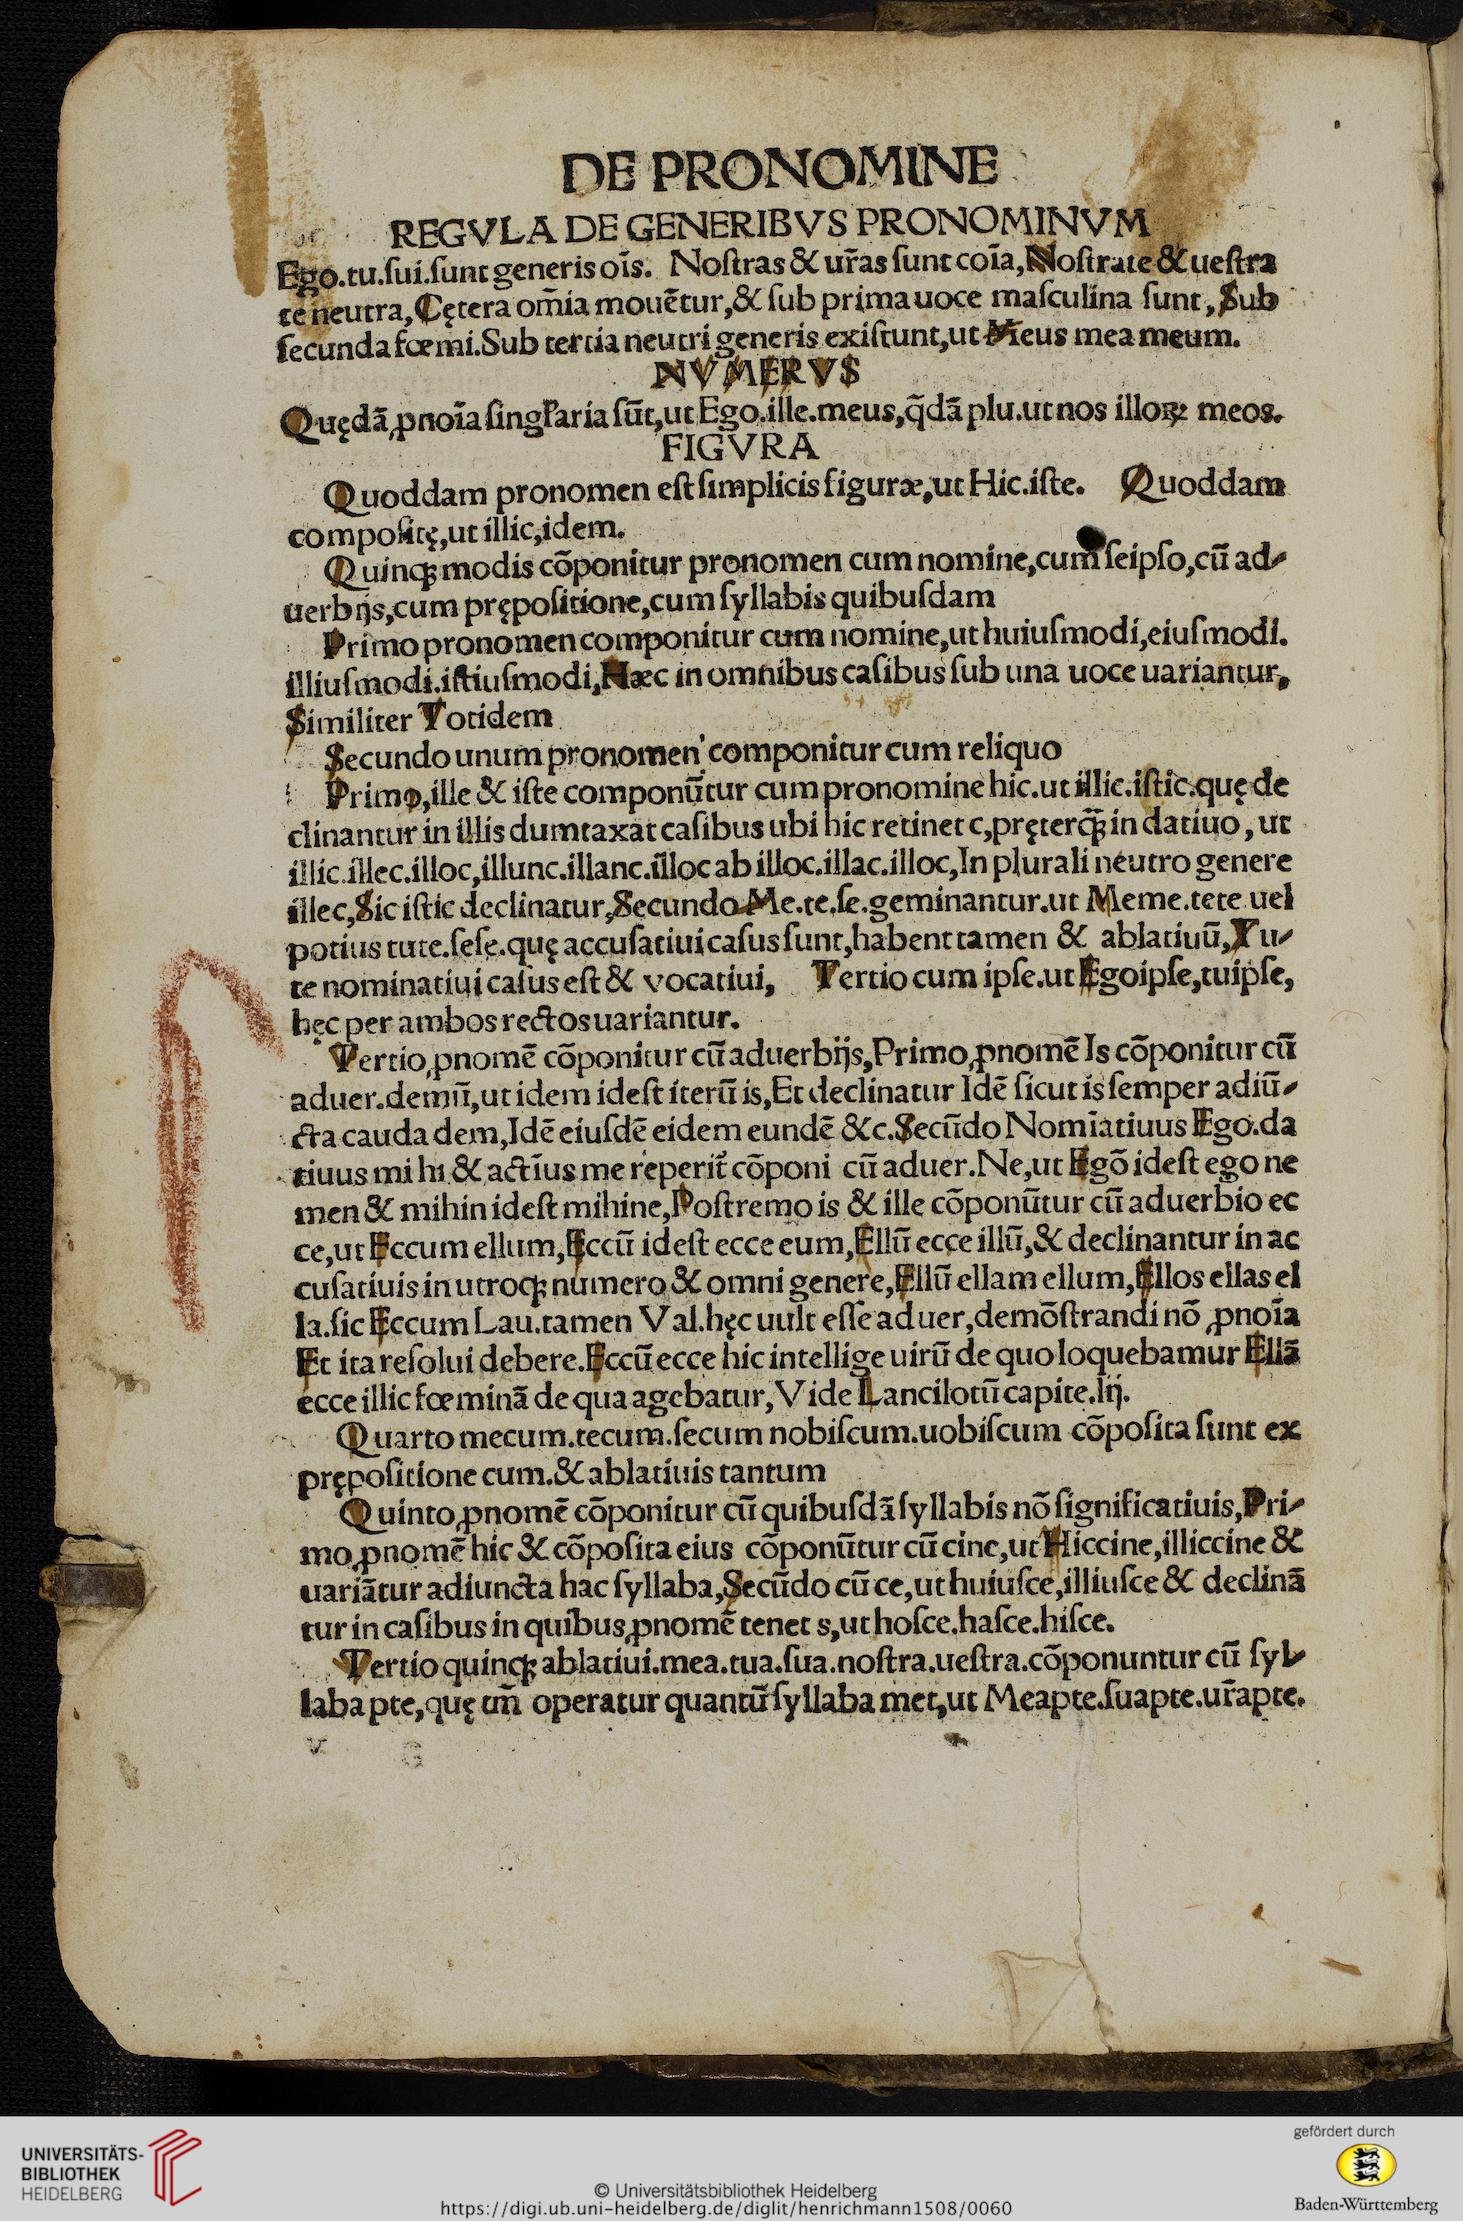 DE PRONOMINE
REGVLA DE GENERIBVS PRONOMINVM
Ego.tu.ſui.ſunt generis oīs. Noſtras & ur̄as ſunt coīa, Noſtrate & ueſtra
te neutra, Cętera om̄ia mouētur, & ſub prima uoce maſculina ſunt, Sub
ſecunda fœmi. Sub tertia neutri generis exiſtunt, ut Meus mea meum.
NVMERVS
Quędā ꝓnoīa ſingl̄aria ſūt, ut Ego.ille.meus, q̄dā plu. ut nos illoꝝ meos.
FIGVRA
Quoddam pronomen eſt ſimplicis figuræ, ut Hic.iſte. Quoddam
compoſitę, ut illic, idem.
Quinqꝫ modis cōponitur pronomen cum nomine, cum ſeipſo, cū ad⸗
uerbijs, cum prępoſitione, cum ſyllabis quibuſdam
Primo pronomen componitur cum nomine, ut huiuſmodi, eiuſmodi.
illiuſmodi.iſtiuſmodi, Hæc in omnibus caſibus ſub una uoce uariantur,
Similiter Totidem
Secundo unum pronomen componitur cum reliquo
Primo, ille & iſte componūtur cum pronomine hic. ut illic.iſtic. quę de
clinantur in illis dumtaxat caſibus ubi hic retinet c, pręterq̄ꝫ in datiuo, ut
illic.illec.illoc, illunc.illanc.illoc ab illoc.illac.illoc, In plurali neutro genere
illec, Sic iſtic declinatur, Secundo Me.te.ſe.geminantur. ut Meme.tete uel
potius tute.ſeſe. quę accuſatiui caſus ſunt, habent tamen & ablatiuū, Tu⸗
te nominatiui caſus eſt & vocatiui, Tertio cum ipſe. ut Egoipſe, tuipſe,
hęc per ambos rectos uariantur.
Tertio ꝓnomē cōponitur cū aduerbijs, Primo ꝓnomē Is cōponitur cū
aduer. demū, ut idem ideſt iterū is, Et declinatur Idē ſicut is ſemper adiū⸗
cta cauda dem, Idē eiuſdē eidem eundē &c. Secūdo Nomīatiuus Ego. da
tiuus mihi & actīus me reperit̄ cōponi cū aduer. Ne, ut Egō ideſt ego ne
men & mihin ideſt mihine, Poſtremo is & ille cōponūtur cū aduerbio ec
ce, ut Eccum ellum, Eccū ideſt ecce eum, Ellū ecce illū, & declinantur in ac
cuſatiuis in utroqꝫ numero & omni genere, Ellū ellam ellum, Ellos ellas el
la. ſic Eccum Lau. tamen Val. hęc uult eſſe aduer, demōſtrandi nō ꝓnoīa
Et ita reſolui debere. Eccū ecce hic intellige uirū de quo loquebamur Ellā
ecce illic fœminā de qua agebatur, Vide Lancilotū capite. lij.
Quarto mecum.tecum.ſecum nobiſcum.uobiſcum cōpoſita ſunt ex
prępoſitione cum. & ablatiuis tantum
Quinto ꝓnomē cōponitur cū quibuſdā ſyllabis nō ſignificatiuis, Pri⸗
mo ꝓnomē hic & cōpoſita eius cōponūtur cū cine, ut Hiccine, illiccine &
uariātur adiuncta hac ſyllaba, Secūdo cū ce, ut huiuſce, illiuſce & declinā
tur in caſibus in quibus ꝓnomē tenet s, ut hoſce.haſce.hiſce.
Tertio quinqꝫ ablatiui. mea.tua.ſua.noſtra.ueſtra. cōponuntur cū ſyl⸗
laba pte, quę tm̄ operatur quantū ſyllaba met, ut Meapte.ſuapte.ur̄apte.
UNIVERSITÄTS-
BIBLIOTHEK
HEIDELBERG
gefördert durch
Baden-Württemberg
© Universitätsbibliothek Heidelberg
https://digi.ub.uni-heidelberg.de/diglit/henrichmann1508/0060